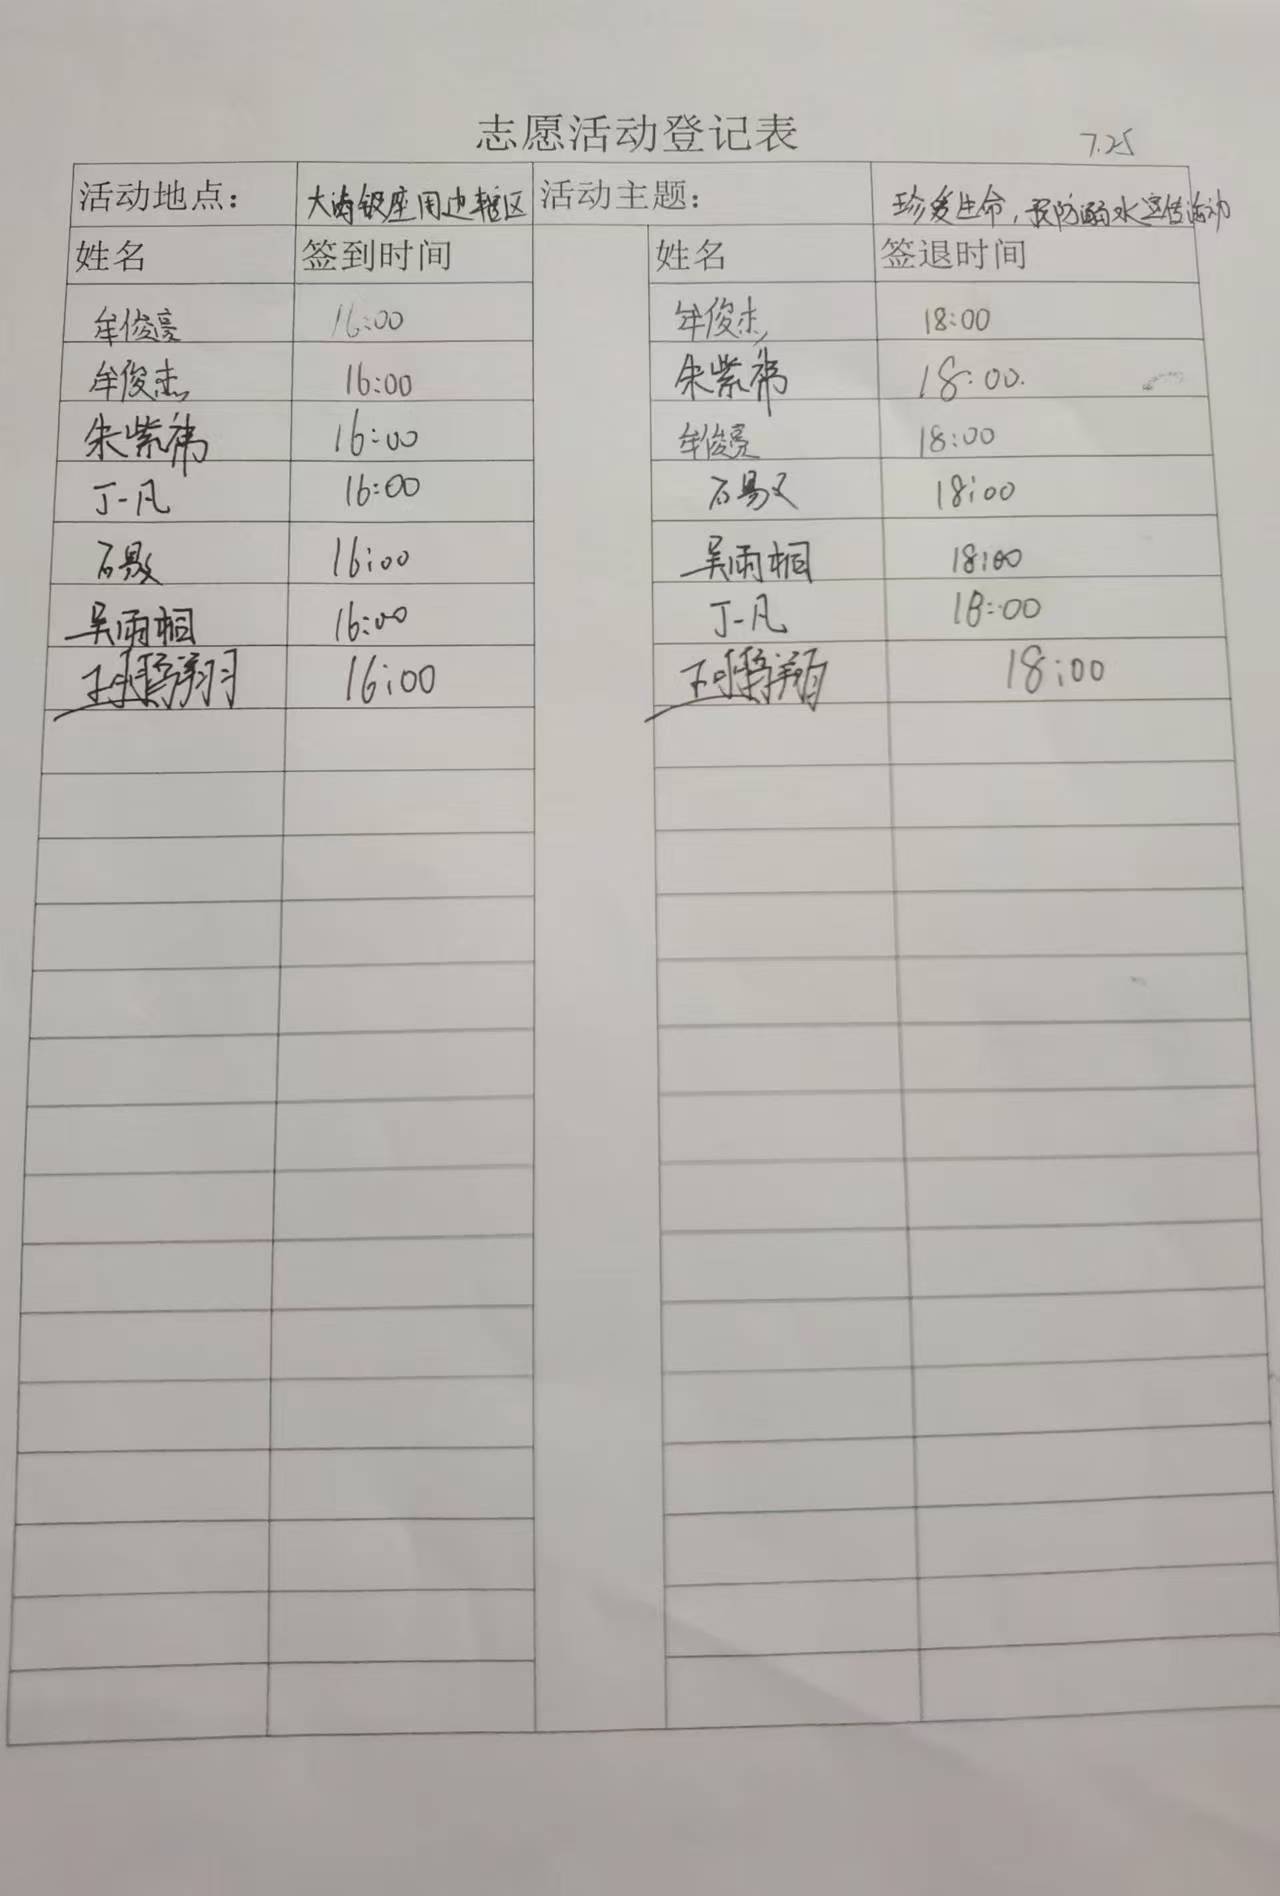 志愿活动登记表
7.25
活动地点： 大 银座周边辖区 活动主题： 珍爱生命，预防溺水宣传活动
姓名 签到时间 姓名 签退时间
牟俊亮 16:00 牟俊杰 18:00
牟俊杰 16:00 朱紫祎 18:00.
朱紫祎 16:00 牟俊亮 18:00
丁一凡 16:00 石易 18:00
石易 16:00 吴雨桐 18:00
吴雨桐 16:00 丁一凡 18:00
16:00 18:00